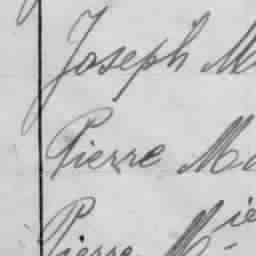 Joseph M
Pierre Ma
Pierre M